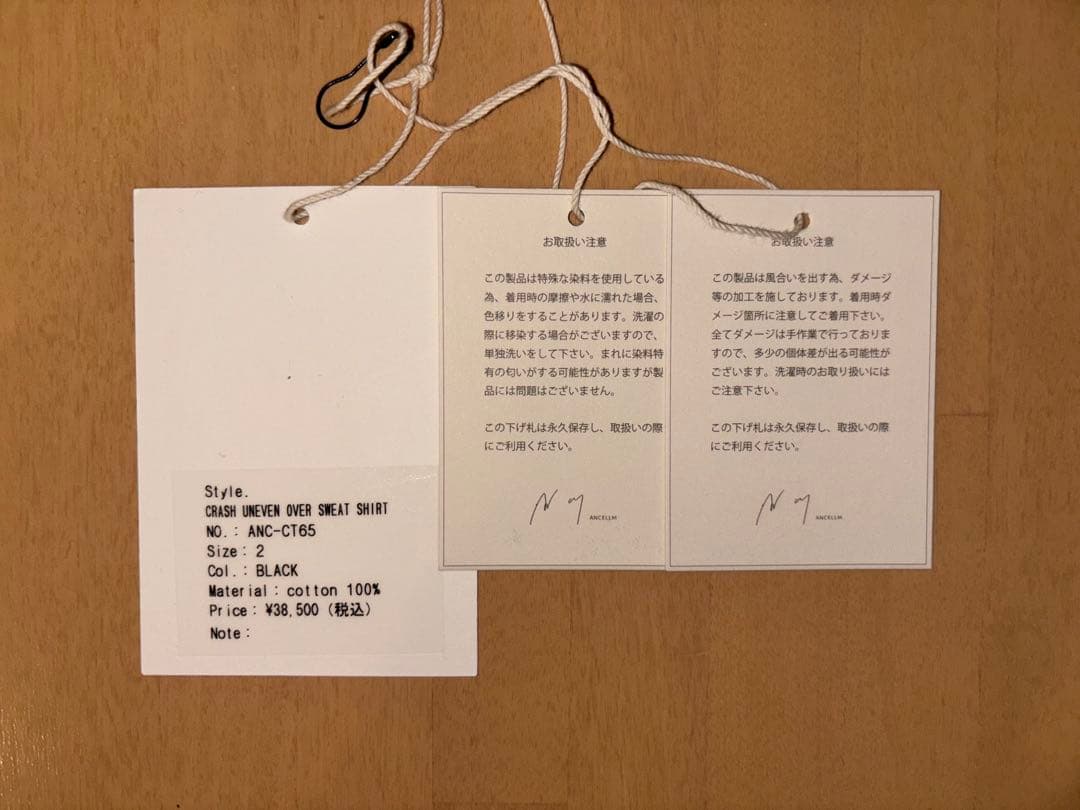 Style.
CRASH UNEVEN OVER SWEAT SHIRT
NO.: ANC-CT65
Size: 2
Col.: BLACK
Material: cotton 100%
Price: ¥38,500 (税込)
Note:
お取扱い注意
この製品は特殊な染料を使用している
為、着用時の摩擦や水に濡れた場合、
色移りをすることがあります。洗濯の
際に移染する場合がございますので、
単独洗いをして下さい。まれに染料特
有の匂いがする可能性がありますが製
品には問題はございません。
この下げ札は永久保存し、取扱いの際
にご利用ください。
ANCELLM
お取扱い注意
この製品は風合いを出す為、ダメージ
等の加工を施しております。着用時ダ
メージ箇所に注意してご着用下さい。
全てダメージは手作業で行っておりま
すので、多少の個体差が出る可能性が
ございます。洗濯時のお取り扱いには
ご注意下さい。
この下げ札は永久保存し、取扱いの際
にご利用ください。
ANCELLM